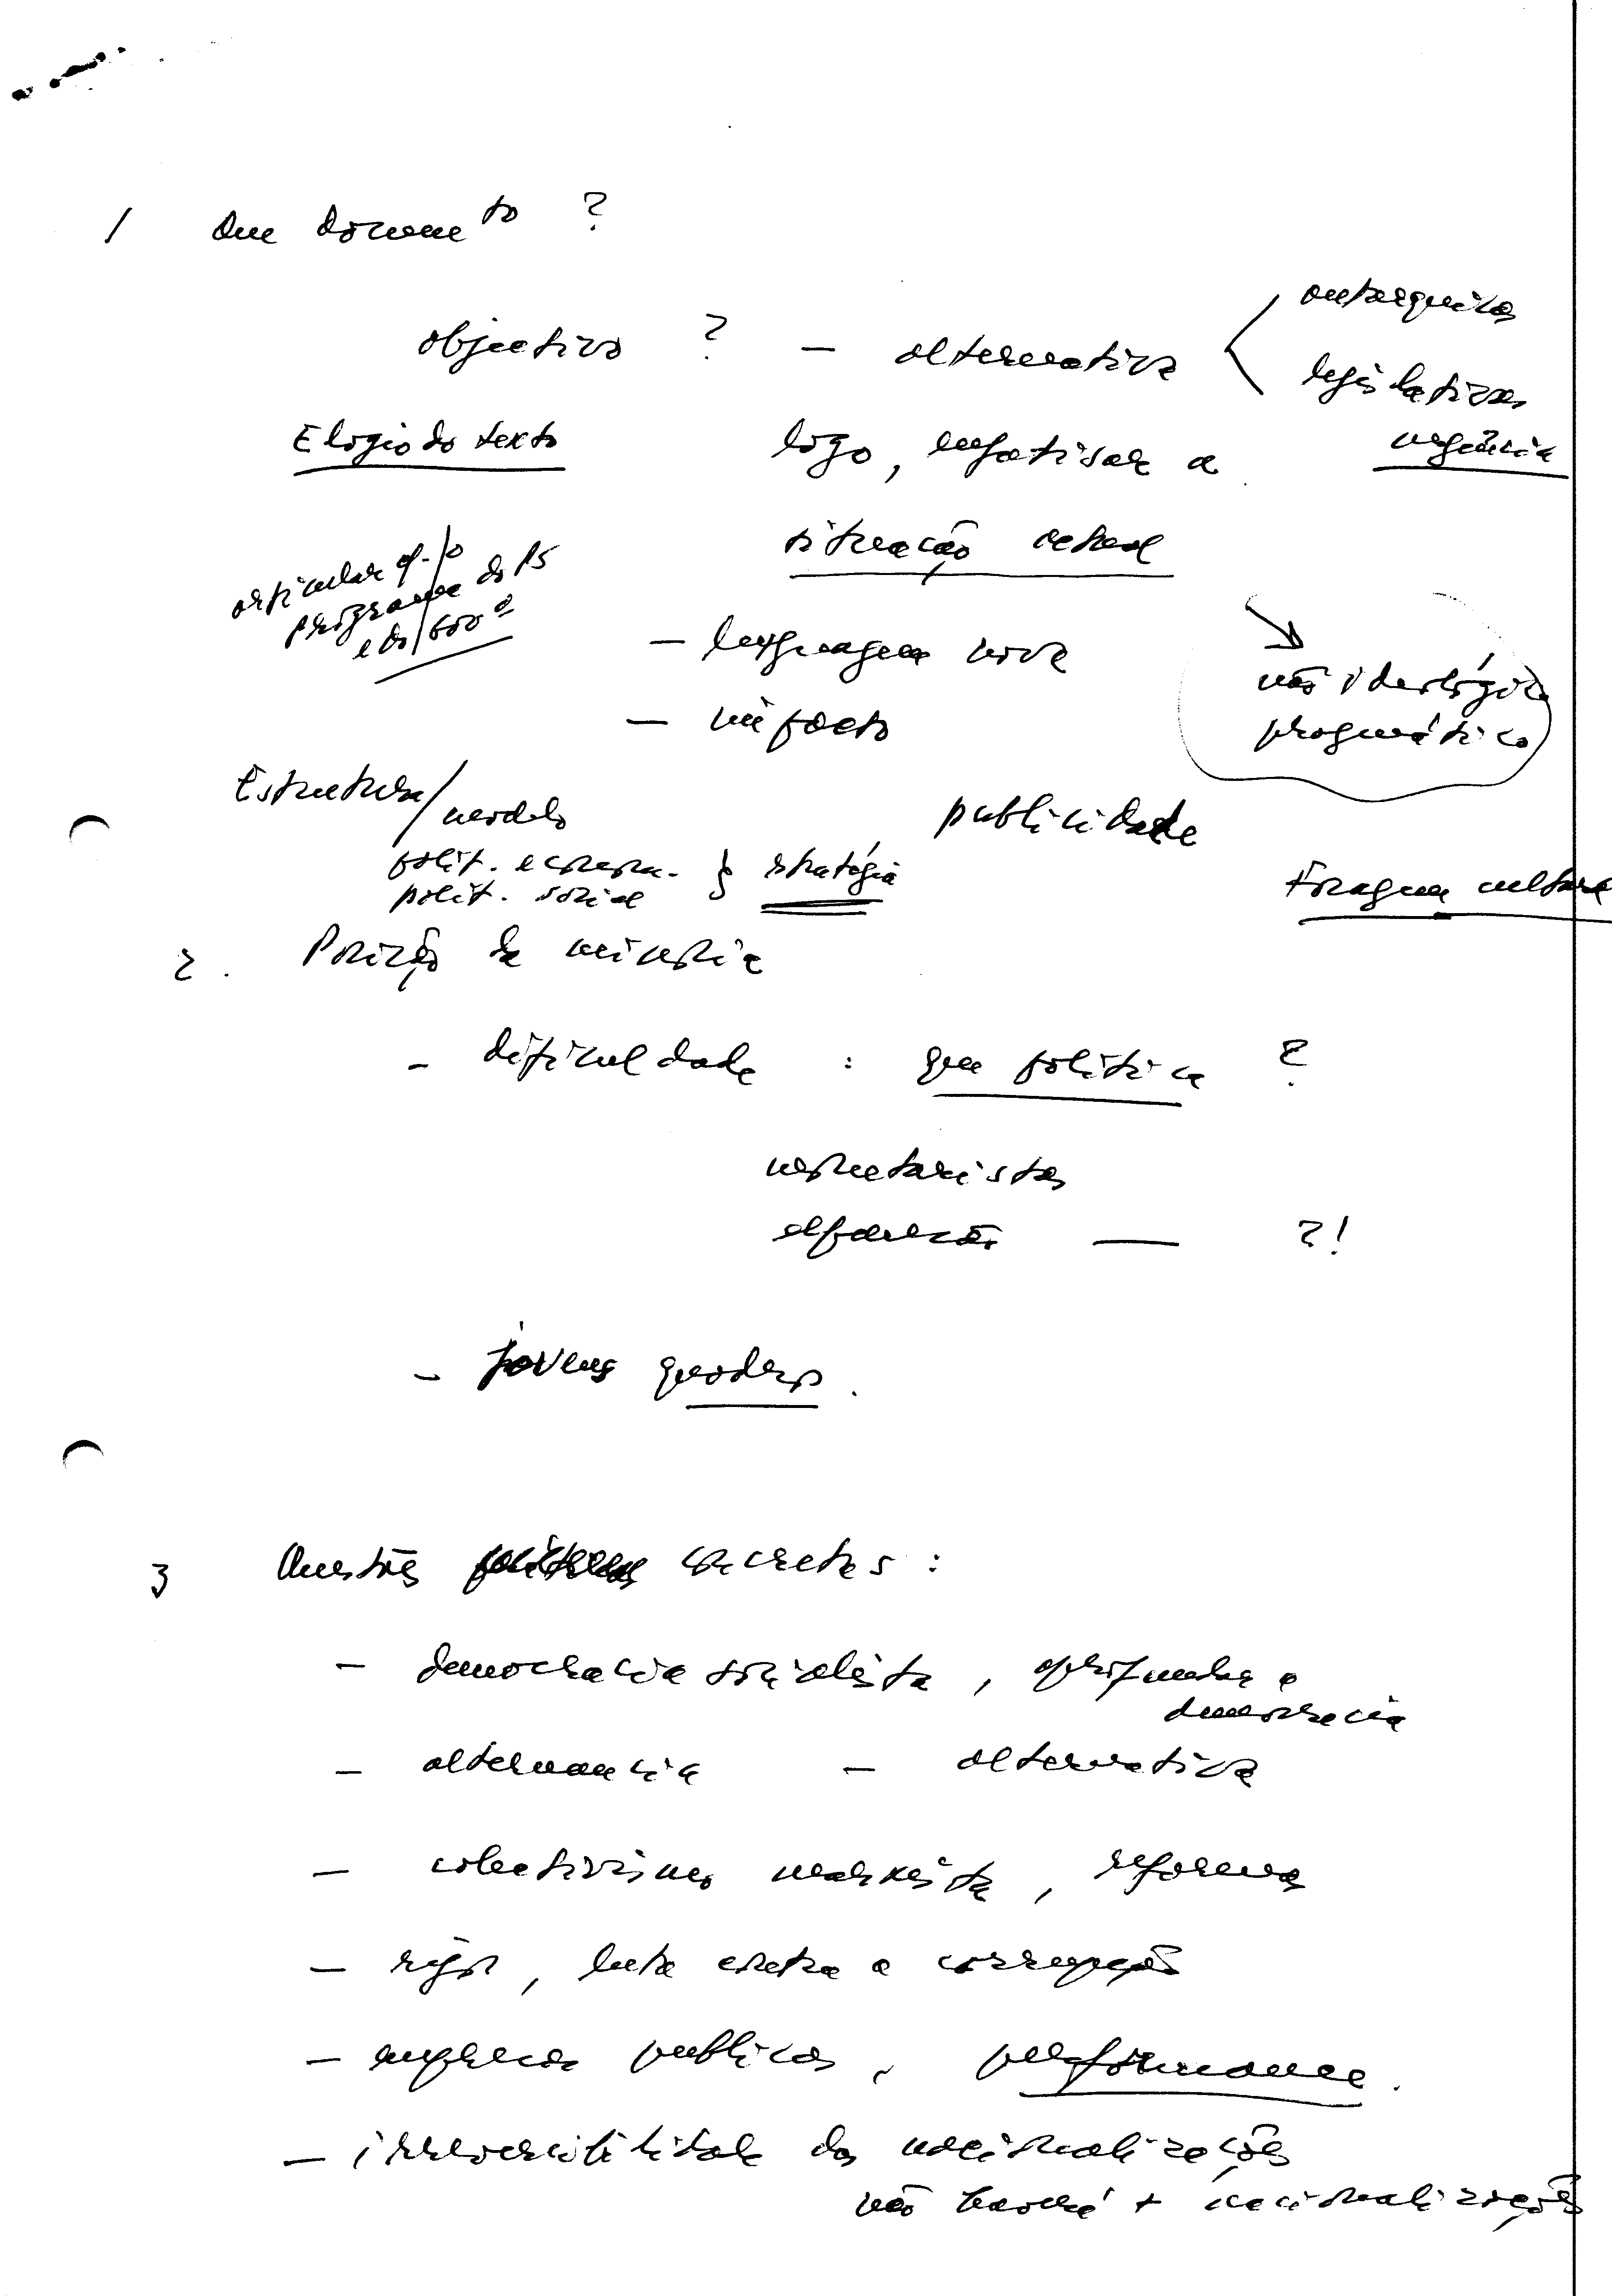 1 Que documento ?
objectivo ? — alternativa < autarquicas
legislativas
Elogio do texto
logo, enfatisar a urgência
situação actual
articular c/ o
programa do PS
e do
— linguagem nova
— impacto
não ideológico
pragmático
Estrutura/
modelo
publicidade
polit. econom. } estratégia
polit. social
2. Posição da minoria
- dificuldade : que política ?
monetarista
expansão — ?!
- jovens quadros.
3 Questões concretas :
— democracia socialista, aprofundar a
democracia
— alternancia — alternativa
— colectivismo marxista, reformas
— rigor, luta contra a corrupção
— empresas publicas, performance.
— irreversibilidade das nacionalizações
não haverá + nacionalizações